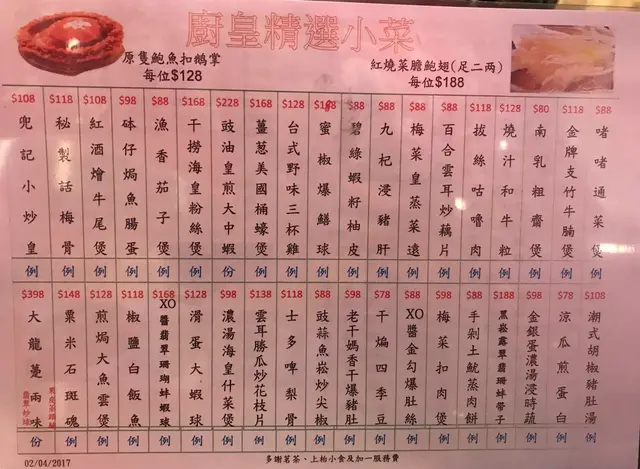 廚皇精選小菜
原隻鮑魚扣鵝掌
每位$128
紅燒菜膽鮑翅(足二两)
每位$188
$108 兜記小炒皇 例
$118 秘製話梅骨 例
$108 紅酒燴牛尾煲 例
$98 砵仔焗魚腸蛋 例
$88 漁香茄子煲 例
$168 干撈海皇粉絲煲 例
$228 豉油皇煎大中蝦 份
$168 薑葱美國桶蠔煲 例
$128 台式野味三杯雞 例
蜜椒爆鱔球 例
$88 碧綠蝦籽柚皮 例
$88 九杞浸豬肝 例
$88 梅菜皇蒸菜遠 例
$88 百合雲耳炒藕片 例
$118 拔絲咕嚕肉 例
$128 燒汁和牛粒 例
$80 南乳粗齋煲 例
$118 金牌支竹牛腩煲 例
$88 啫啫通菜煲 例
$398 大龍躉兩味 份
$148 粟米石斑魂 例
$128 煎焗大魚雲煲 例
$118 椒鹽白飯魚 例
$168 XO醬翡翠珊瑚蚌蝦球 例
$128 滑蛋大蝦球 例
$98 濃湯海皇什菜煲 例
$138 雲耳勝瓜炒花枝片 例
$118 士多啤梨骨 例
$88 豉蒜魚崧炒尖椒 例
$98 老干媽香干爆豬肚 例
$78 干煸四季豆 例
$88 XO醬金勾爆肚絲 例
$98 梅菜扣肉煲 例
$88 手剁土魷蒸肉餅 例
$188 黑崧露翠翡珊蚌帶子 例
$98 金銀蛋濃湯浸時蔬 例
$78 涼瓜煎蛋白 例
$108 潮式胡椒豬肚湯 例
02/04/2017
多謝茗茶、上枱小食及加一服務費